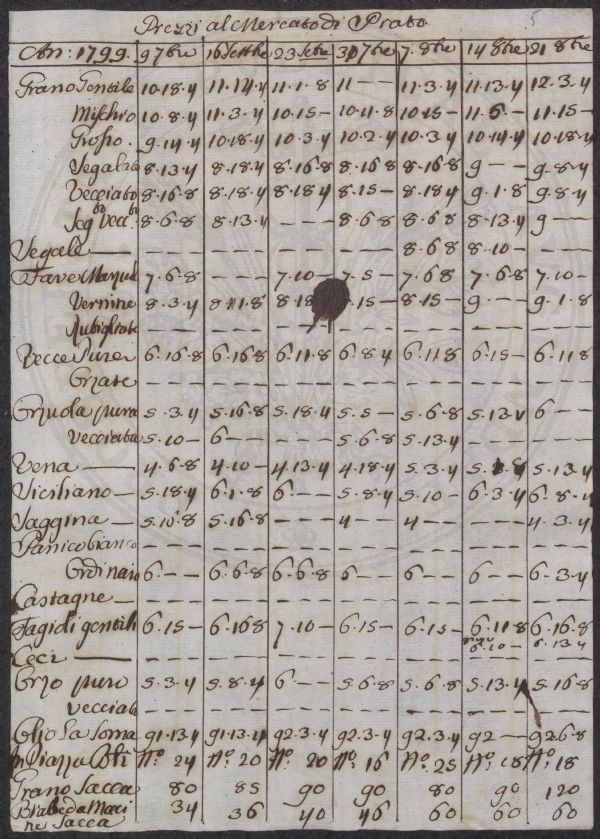 Prezzi al Mercato di Prato 5
An: 1799. 9 7bre 16 Settbre 23 Sebre 30 7bre 7. 8bre 14 8bre 21 8bre
Grano Gentile 10.18.4 11.14.4 11.1.8 11 — — 11.3.4 11.13.4 12.3.4
Mischio 10.8.4 11.3.4 10.15 — 10.11.8 10.15 — 11.6. — 11.15 —
Grosso. 9.14.4 10.18.4 10.3.4 10.2.4 10.3.4 10.14.4 10.18.4
Segalato 8.13.4 8.18.4 8.16.8 8.16.8 8.16.8 9 — — 9.8.4
Vecciato 8.16.8 8.18.4 8.18.4 8.15 — 8.18.4 9.1.8 9.8.4
Segto vecto 8.6.8 8.13.4 — — — 8.6.8 8.6.8 8.13.4 9 —
Segale — — — — — — — — — — — — — 8.6.8 8.10 — — — —
Fave 7.6.8 — — — 7.10 — 7.5 — 7.6.8 7.6.8 7.10 —
Vernine 8.3.4 8.11.8 8.18 .15 — 8.15 — 9 — — 9.1.8
— — — — — — — — — — — — — — — — — — — — —
Vecce Pure 6.16.8 6.16.8 6.11.8 6.8.4 6.11.8 6.15 — 6.11.8
Grate — — — — — — — — — — — — — — — — — — — — —
pura 5.3.4 5.16.8 5.18.4 5.5 — 5.6.8 5.13.4 6 —
vecciata 5.10 — 6 — — — — — 5.6.8 5.13.4 — — — — — —
Vena — 4.6.8 4.10 — 4.13.4 4.18.4 5.3.4 5. .8 5.13.4
Siciliano — 5.18.4 6.1.8 6 — — 5.8.4 5.10 — 6.3.4 6.8.4
Saggina — 5.10.8 5.16.8 — — — 4 — — 4 — — — — — 4.3.4
Panico bianco — — — — — — — — — — — — — — — — — — — — —
Ordinaio 6 — — 6.6.8 6.6.8 6 — — 6 — — 6 — — 6.3.4
Castagne — — — — — — — — — — — — — — — — — — — — — —
Fagioli gentili 6.15 — 6.16.8 7.10 — 6.15 — 6.15 — 6.11.8 6.16.8
6.10 — 6.13.4
Ceci — — — — — — — — — — — — — — — — — — —
Orzo puro 5.3.4 5.8.4 6 — — 5.6.8 5.6.8 5.13.4 5.16.8
vecciato — — — — — — — — — — — — — — — — — — — — —
Olio La Soma 91.13.4 91.13.4 92.3.4 92.3.4 92.3.4 92 — 92.6.8
In Piazza No. 24 No. 20 No. 20 No. 16 No. 25 No. 18 No. 18
Grano Sacca 80 85 90 90 80 90 120
Biade da Maci 34 36 40 46 60 60 60
ne Sacca